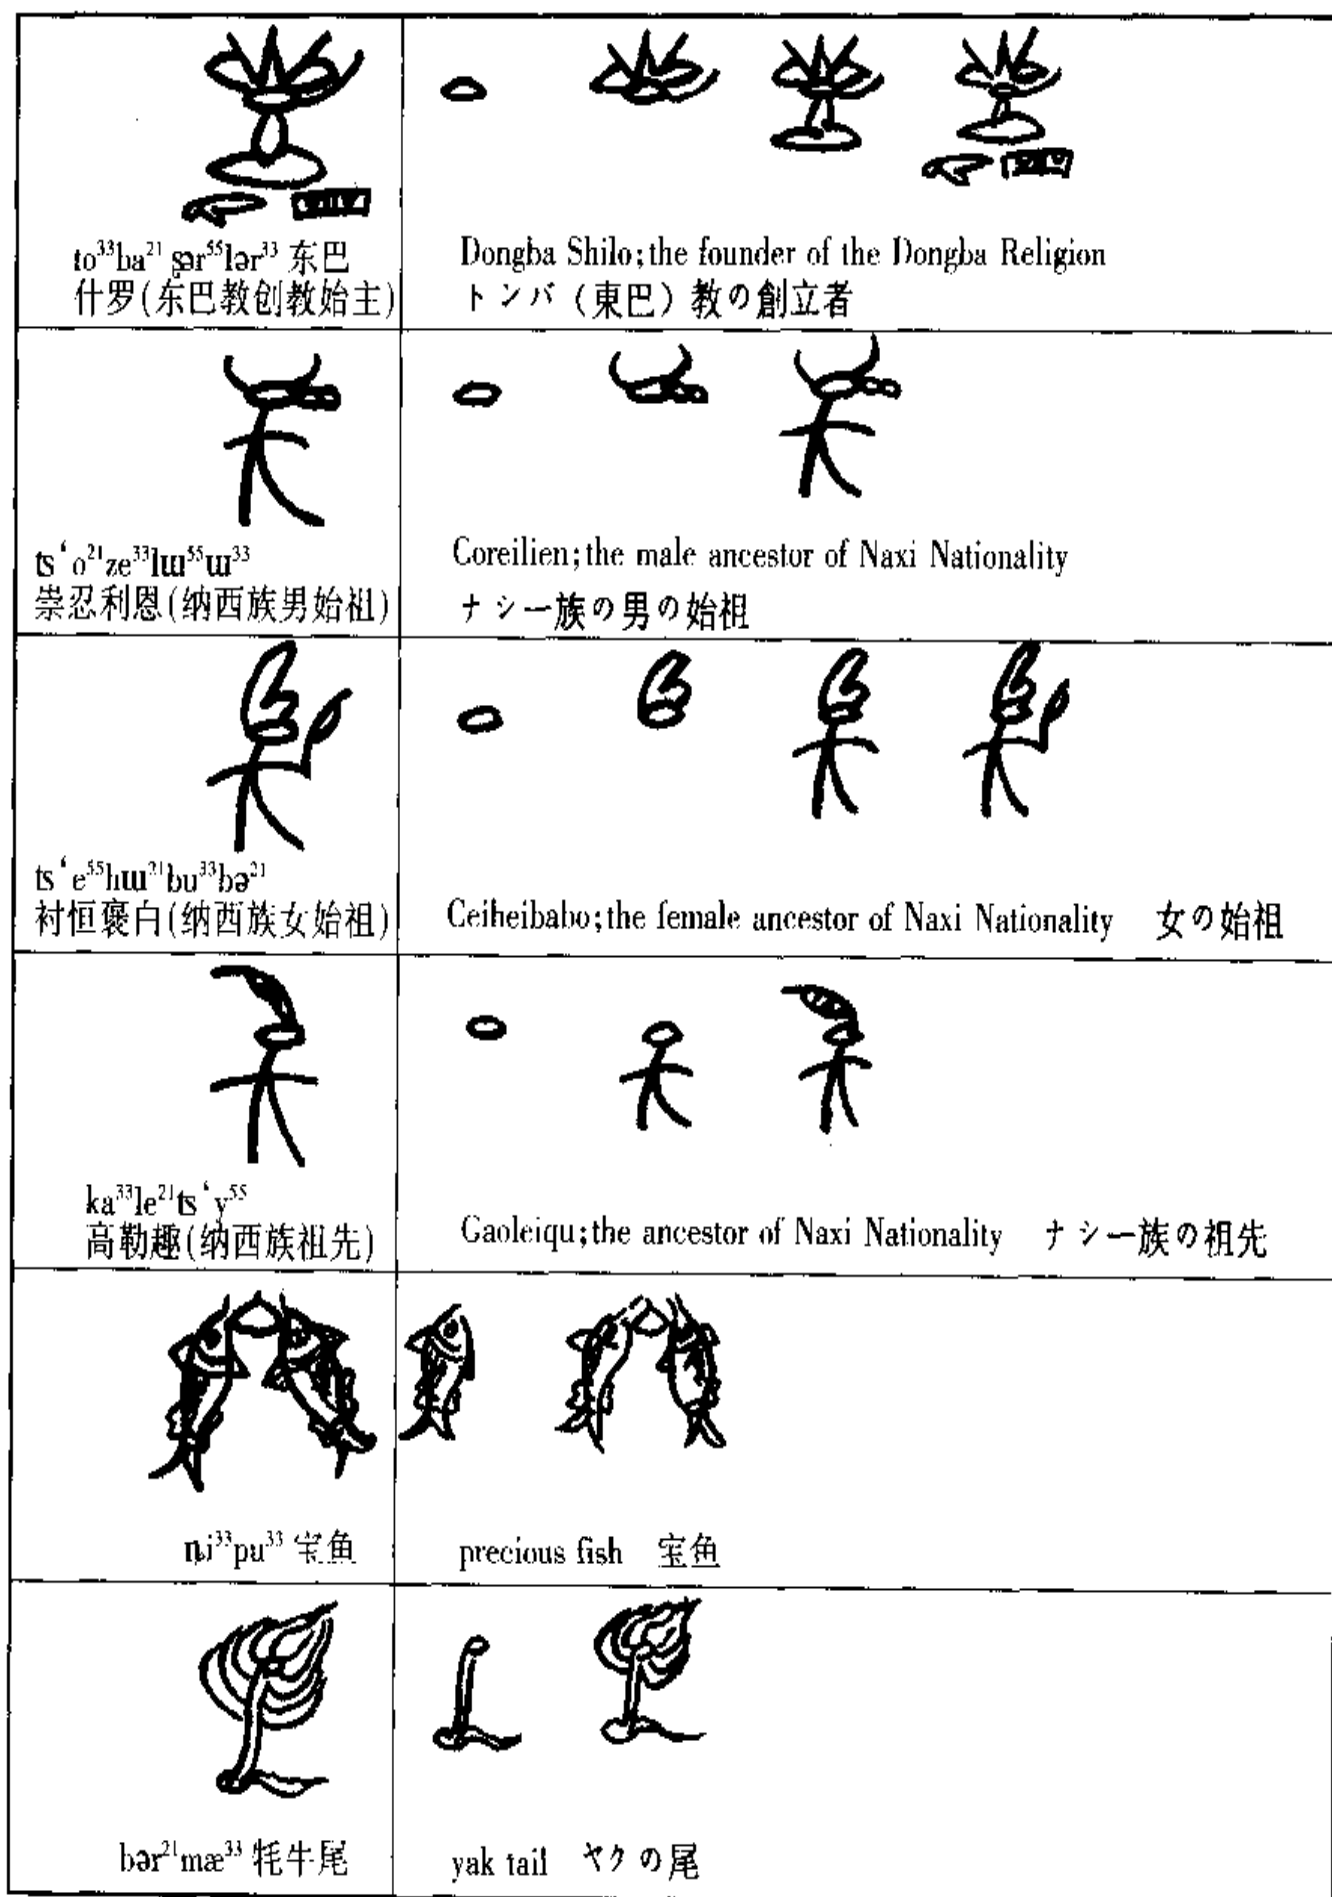 to³³ba²¹ ʂər⁵⁵lər³³ 东巴
什罗(东巴教创教始主)
Dongba Shilo;the founder of the Dongba Religion
トンバ（東巴）教の創立者
ts‘o²¹ze³³lɯ⁵⁵ɯ³³
崇忍利恩(纳西族男始祖)
Coreilien;the male ancestor of Naxi Nationality
ナシ一族の男の始祖
ts‘e⁵⁵hɯ²¹bu³³bə²¹
衬恒褒白(纳西族女始祖)
Ceiheibabo;the female ancestor of Naxi Nationality 女の始祖
ka³³le²¹ts‘y⁵⁵
高勒趣(纳西族祖先)
Gaoleiqu;the ancestor of Naxi Nationality ナシ一族の祖先
ȵi³³pu³³ 宝鱼
precious fish 宝鱼
bər²¹mæ³³ 牦牛尾
yak tail ヤクの尾